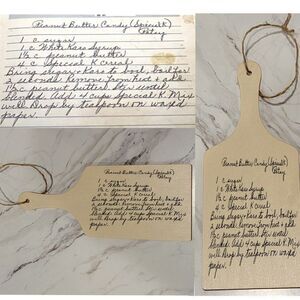 Peanut Butter Candy (Special K)
Patsy
1 c sugar
1 c White Karo Syrup
1½ c peanut butter
4 c Special K cereal
Bring sugar & Karo to boil, boil for
a seconds. Remove from heat & add
1½ c peanut butter. Stir until
blended. Add 4 cups Special K. Mix
well. Drop by teaspoon on waxed
paper.
Peanut Butter Candy (Special K)
Patsy
1 c sugar
1 c White Karo Syrup
1½ c peanut butter
4 c Special K cereal
Bring sugar & Karo to boil, boil for
a seconds. Remove from heat & add
1½ c peanut butter. Stir until
blended. Add 4 cups Special K. Mix
well. Drop by teaspoon on waxed
paper.
Peanut Butter Candy (Special K)
Patsy
1 c sugar
1 c White Karo Syrup
1½ c peanut butter
4 c Special K cereal
Bring sugar & Karo to boil, boil for
a seconds. Remove from heat & add
1½ c peanut butter. Stir until
blended. Add 4 cups Special K. Mix
well. Drop by teaspoon on waxed
paper.